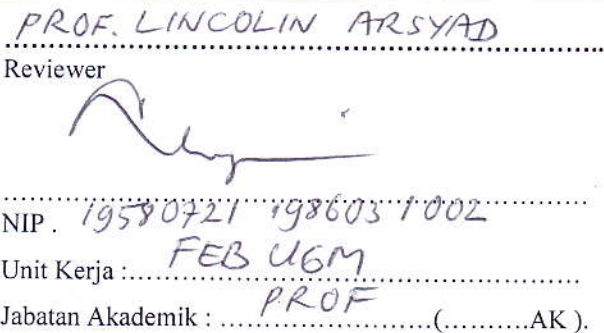 PROF. LINCOLIN ARSYAD
Reviewer
NIP . 19580721 198603 1 002
Unit Kerja :..... FEB UGM
Jabatan Akademik : ..... PROF .....(.........AK ).